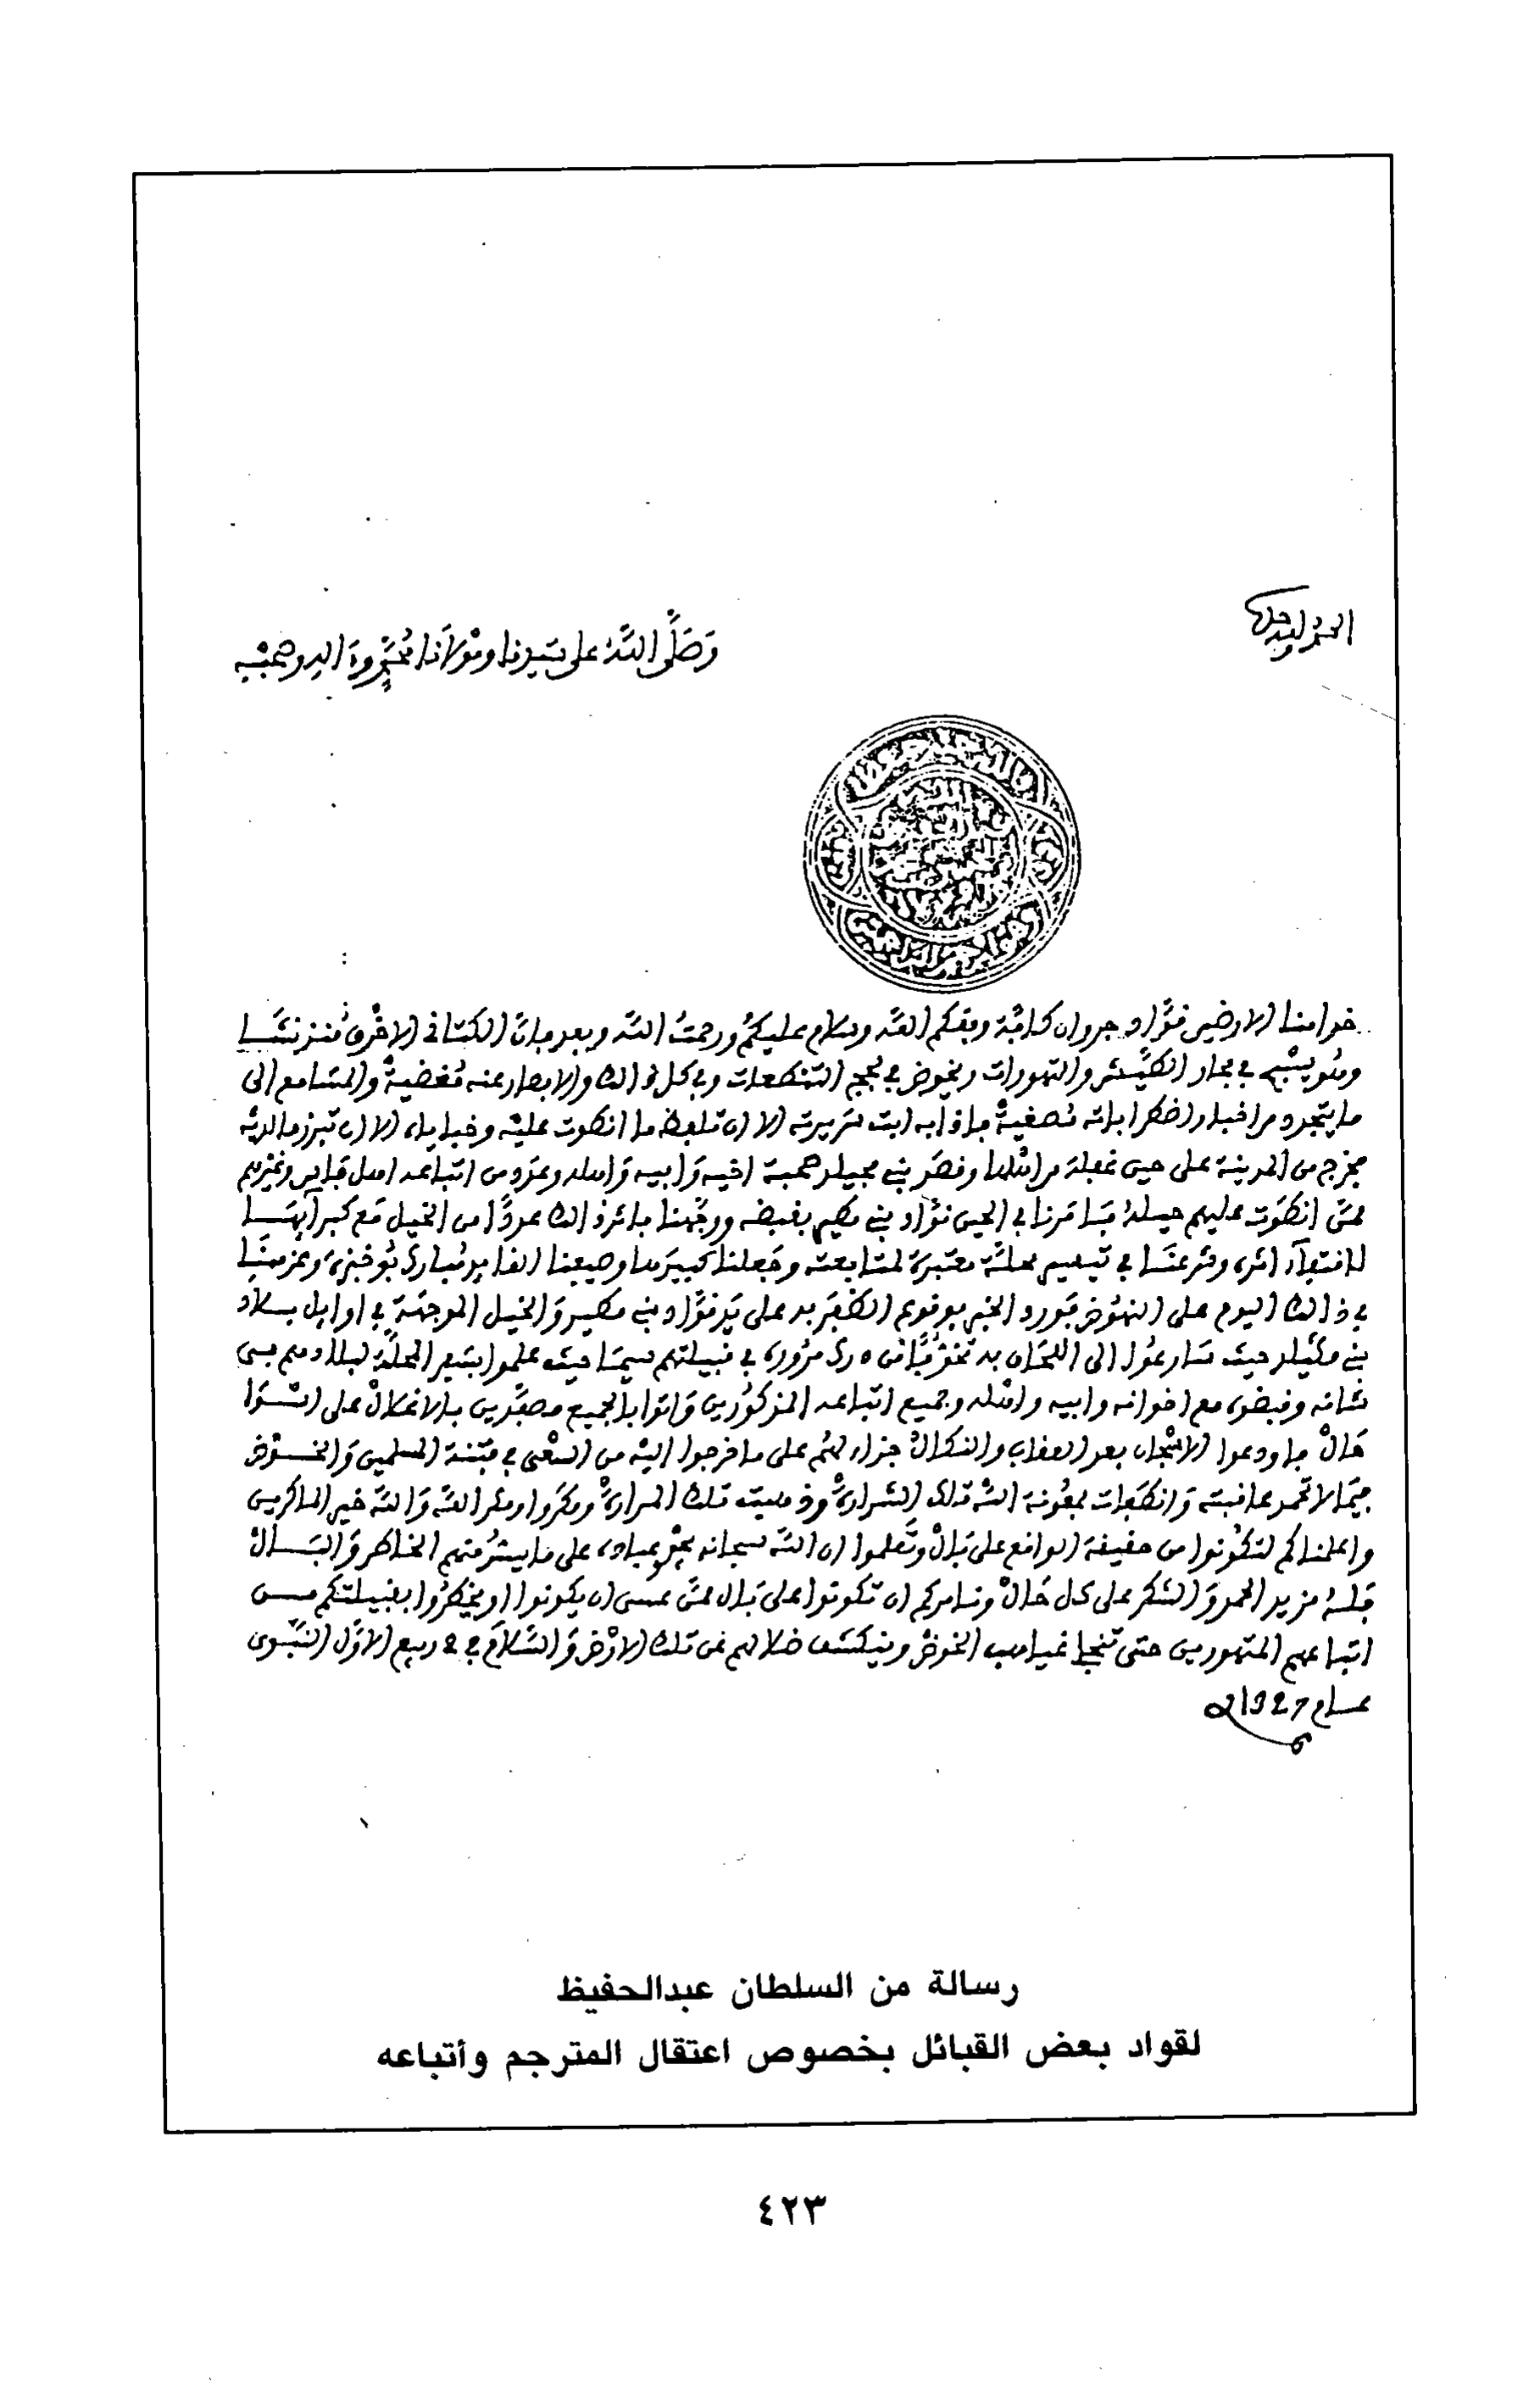 الحمد لله وحده
وَصَلَّى اللَّهُ على سَيِّدنا ومَوْلَانَا مُحَمَّدٍ وءَاله وصحبه
خدامنا الارضين قوَّاد جروان كافة وفقكم الله وسلام عليكم ورحمت الله وبعد فان الكتاني الاخرق منذ نشا
وهو يسبح في بحار الطيش والتهورات ويخوض في لجج التنطعات وفي كل ذالك والابصار عنه مغضية والمسامع الى
ما يتجدد من اخبار اضطراباته مصغية فاذا به ابت سريرته الا ان تلفظ ما انطوت عليه وخباياه الا ان تبرز ما لديه
فخرج من المدينة على حين غفلة من اهلها وقصد بني مجيلد صحبة اخيه وابيه واهله وعدد من اتباعه اهل فاس وغيرهم
ممن انطوت عليهم حيله فامرنا في الحين قواد بني مطير بقبضه ووجهنا باثر ذالك عددا من الخيل مع كبرائها
لاقتفاء اثره وشرعنا في تيسير محلة معتبرة لمتابعته وجعلنا كبيرها وصيفنا القايد مبارك بوخبزة وعزمنا
في ذالك اليوم على النهوض فورد الخبر بوقوع الظفر به على يد قواد بني مطير والخيل الموجهة في اوايل بلاد
بني مكيلد حيث سارعوا الى اللحاق به تخوفا من درك مروره في قبيلتهم سيما حيث علموا بشد المحلة لبلادهم بسبب
شانه وقبضوه مع اخوانه وابيه واهله وجميع اتباعه المذكورين واتوا بالجميع مصفدين بالاغلال على اسوا
حال فاودعوا الاسجان بعد العقاب والنكال جزاء لهم على ما خرجوا اليه من السعي في فتنة المسلمين والخوض
فيما لا تحمد عاقبته وانطفات بمعونة الله تلك الشرارة وذهبت تلك المرارة ومكروا ومكر الله والله خير الماكرين
واعلمناكم لتكونوا من حقيقة الواقع على بال وتعلموا ان الله سبحانه يجر عباده على ما يشد منهم الخاطر والبال
فله مزيد الحمد والشكر على كل حال ونامركم ان تكونوا على بال ممن عسى ان يكونوا او يخطروا بقبيلتكم من
اتباعهم المتهورين حتى تنجلي غياهب الخوض وينكشف ضلالهم عن تلك الارض والسلام في 2 ربيع الاول النبوي
عام 1327
رسالة من السلطان عبدالحفيظ
لقواد بعض القبائل بخصوص اعتقال المترجم وأتباعه
٤٢٣